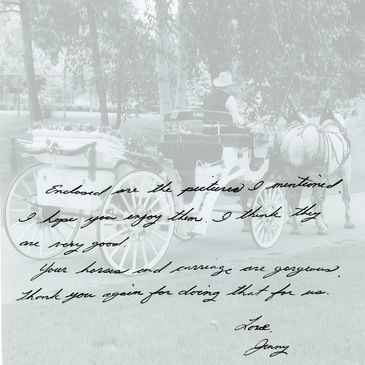 Enclosed are the pictures I mentioned.
I hope you enjoy them. I think they
are very good.
Your horses and carriage are gorgeous.
Thank you again for doing that for us.
Love
Jenny